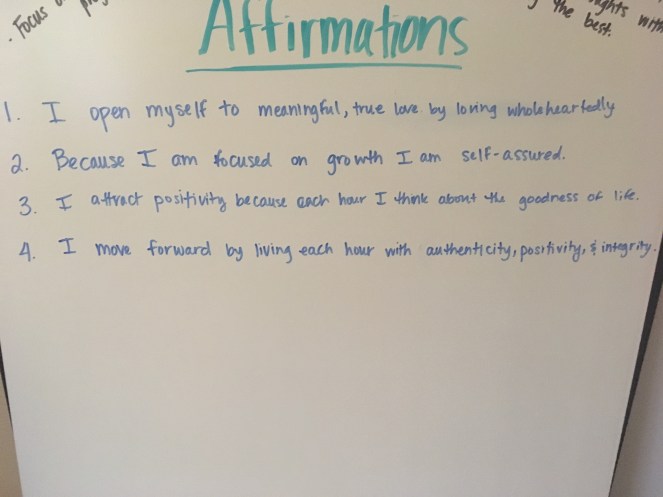 . Focus
the best.
with
Affirmations
1. I open myself to meaningful, true love by loving wholeheartedly
2. Because I am focused on growth I am self-assured.
3. I attract positivity because each hour I think about the goodness of life.
4. I move forward by living each hour with authenticity, positivity, & integrity.